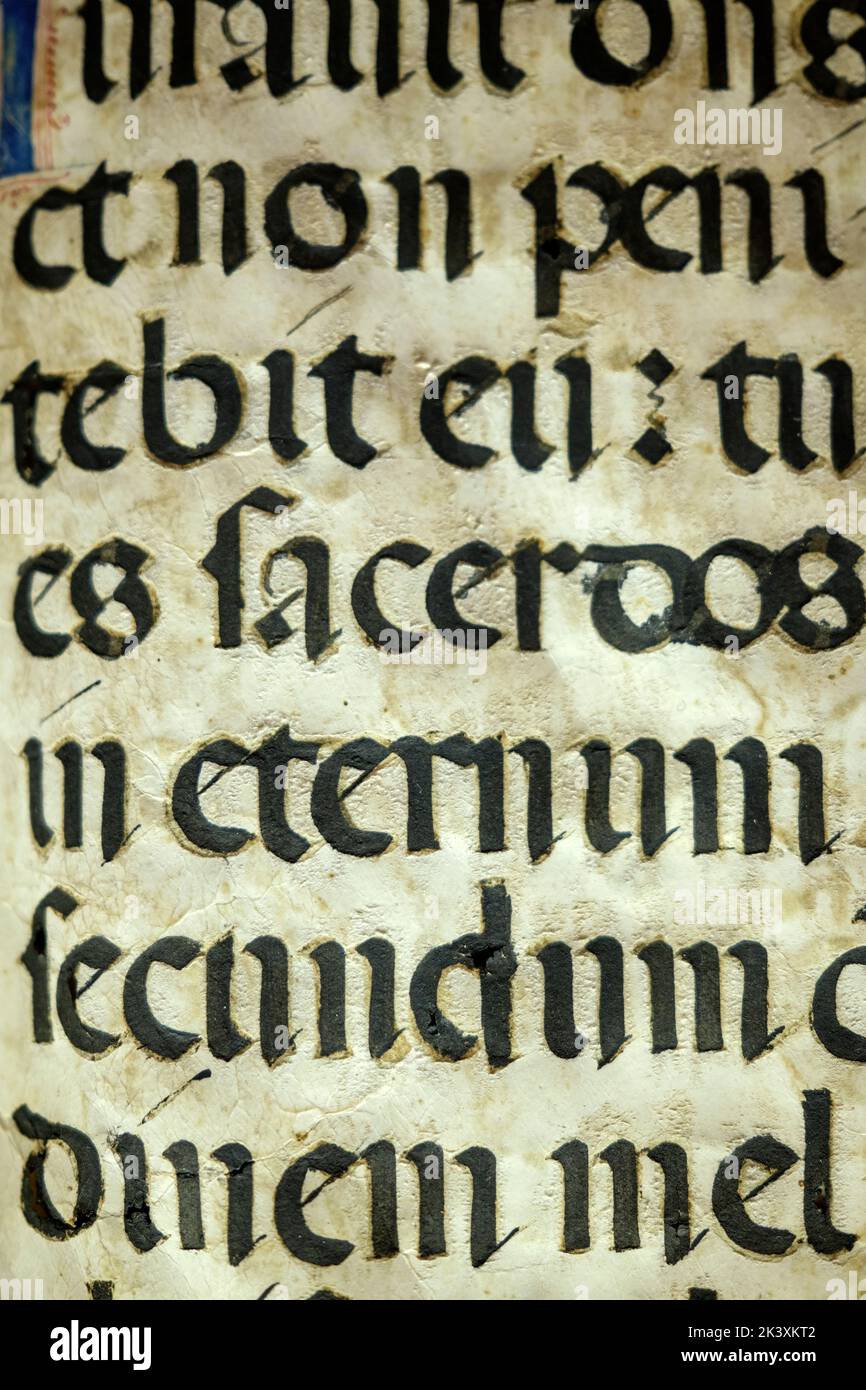 urauit dns
et non peni
tebit eu: tu
es ſacerdos
in eternum
ſecundum
dinem mel
alamy
Image ID: 2K3XKT2
www.alamy.com